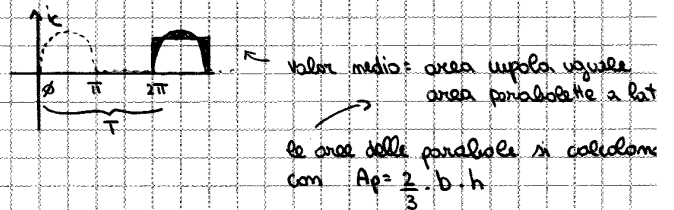 valor medio = area cupola uguale
area parabolette a lat
0 π 2π
T
le aree delle parabole si calcolan
con Ap = 2/3 · b · h